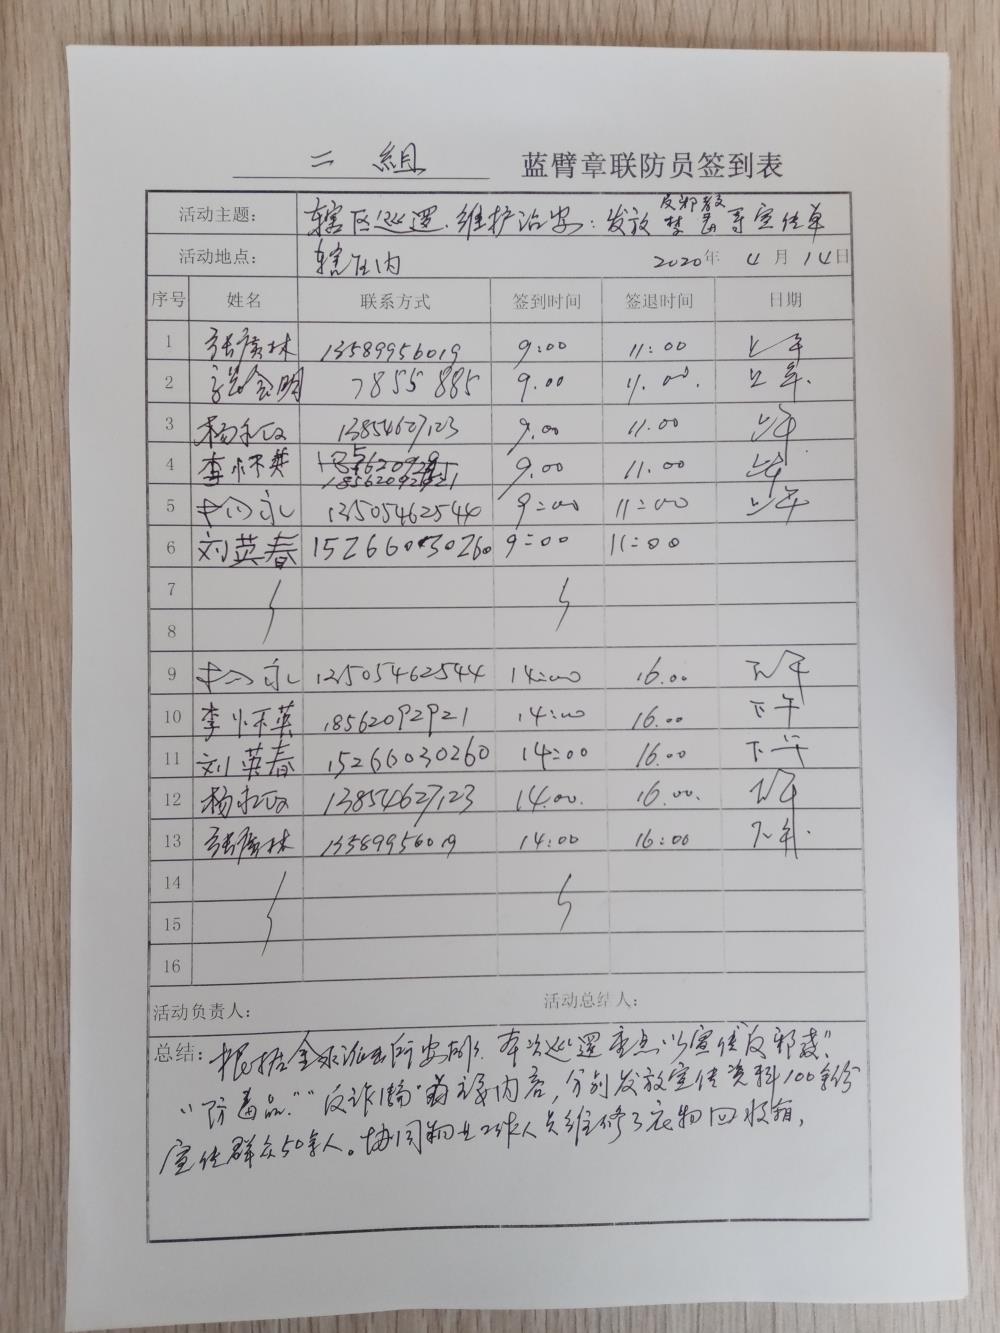 二組 蓝臂章联防员签到表
活动主题: 辖区巡逻.维护治安:发放反邪教禁毒等宣传单
活动地点: 辖区内 2020年 4月14日
序号 姓名 联系方式 签到时间 签退时间 日期
1 张广林 13589956019 9:00 11:00 上午
2 金明 7855885 9.00 11.00. 上午.
3 杨永政 13854627123 9.00 11.00 上午
4 李怀英 18562092921 9.00 11.00 上午
5 永 13505462544 9:00 11:00 上午
6 刘英春 15266030260 9:00 11:00
7
8
9 永 13505462544 14:00 16.00 下午
10 李怀英 18562092921 14:00 16.00 下午
11 刘英春 15266030260 14:00 16.00 下午
12 杨永政 13854627123 14.00. 16.00. 下午
13 张广林 13589956019 14:00 16:00 下午.
14
15
16
活动负责人: 活动总结人:
总结: 根据派出所安排.本次巡逻重点以"宣传反邪教".
"防毒品.""反诈骗"为主要内容,分别发放宣传资料100余份
宣传群众50余人。协同物业工作人员维修了衣物回收箱,